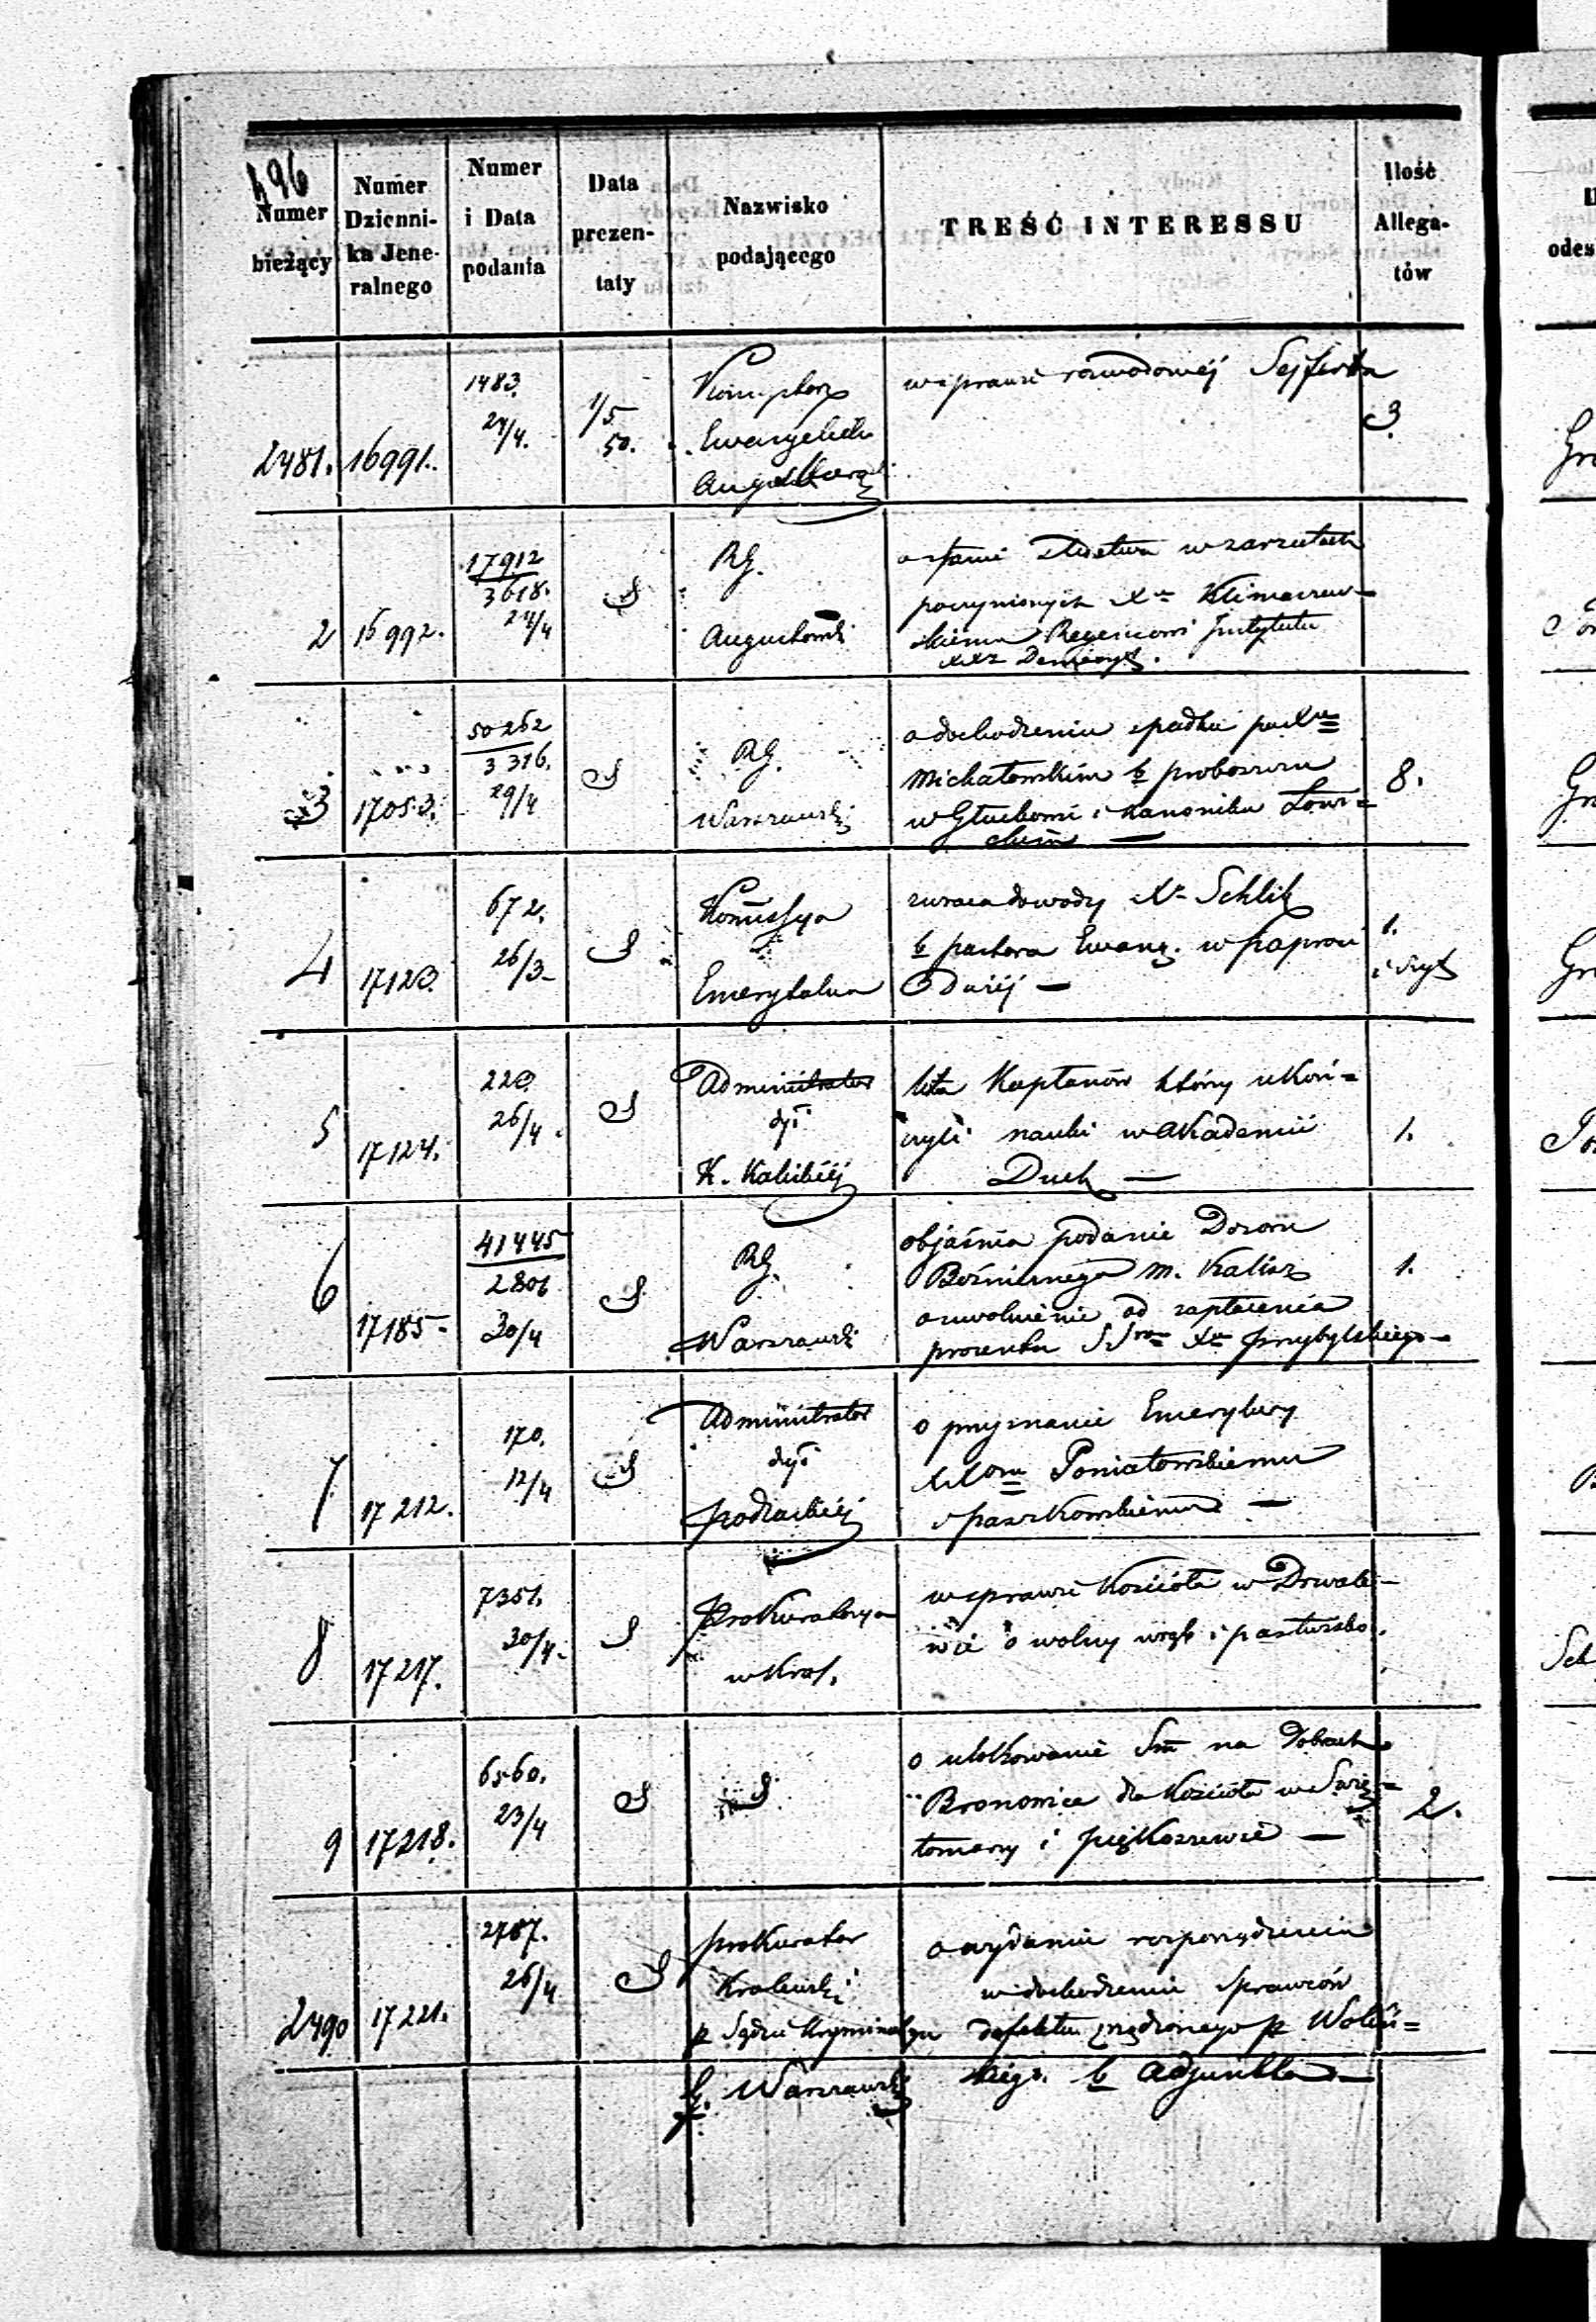 496
Numer bieżący
Numer Dzienni-ka Jene-ralnego
Numer i Data podania
Data prezen-taty
Nazwisko podającego
TREŚĆ INTERESSU
Ilość Allega-tów
2481. 16991. 1483. 24/4. 1/5 50.
Ewangelicko
Augsburg.
w sprawie rozwodowéj Sejferta
3
2 16992. 17912 3618. 24/4
RG.
Augustowski
o stanie w zarzutach
poczynionych Xu Klimaszew-
skiemu Regensowi Instytutu
XXz Demeryt.
3 17053. 50262 3316. 29/4
RG.
Warszawski
o dochodzeniu spadku po Xu
Michałowskim b proboszczu
w Głuchowie i Kanoniku Łowi-
ckim —
8.
4 17123. 672. 26/3.
Kommissya
Emerytalna
zwraca dowody Xa Schlik
b pastora Ewang. w paproci
Dużéj —
1.
i szyt
5 17124. 220. 26/4.
Administrator
dyi
K. Kaliskiéj
lista Kapłanów którzy ukoń-
czyli nauki w Akademii
Duch —
1.
6 17185. 41445 2806 30/4
RG.
Warszawski
objaśnia podanie Dozoru
Bóżniczego m. Kalisz
o uwolnienie od zapłacenia
procentu Xa przybylskiego —
1.
7 17212. 170. 12/4
Administrator
dyi
podlaskiéj
o przyznanie Emerytury
XXom Poniatowskiemu
i paszkowskiemu —
8 17217. 7351. 30/4.
Prokuratorya
w Król.
w sprawie Kościoła w Drwale-
wie o wolny wrąb i pastwisko.
9 17218. 6560. 23/4
o ulokowanie Sm na Dobrach
Bronowice dla Kościoła w Świę-
tomarzy i piątkowie —
2.
2490 17221. 2787. 26/4
prokurator
Królewski
p Sądzie Kryminalnym
G. Warszawski
o wydanie rozporządzenia
w dochodzeniu sprawców
defektu zrządzonego p Woliń-
skiego b Adjunkta —